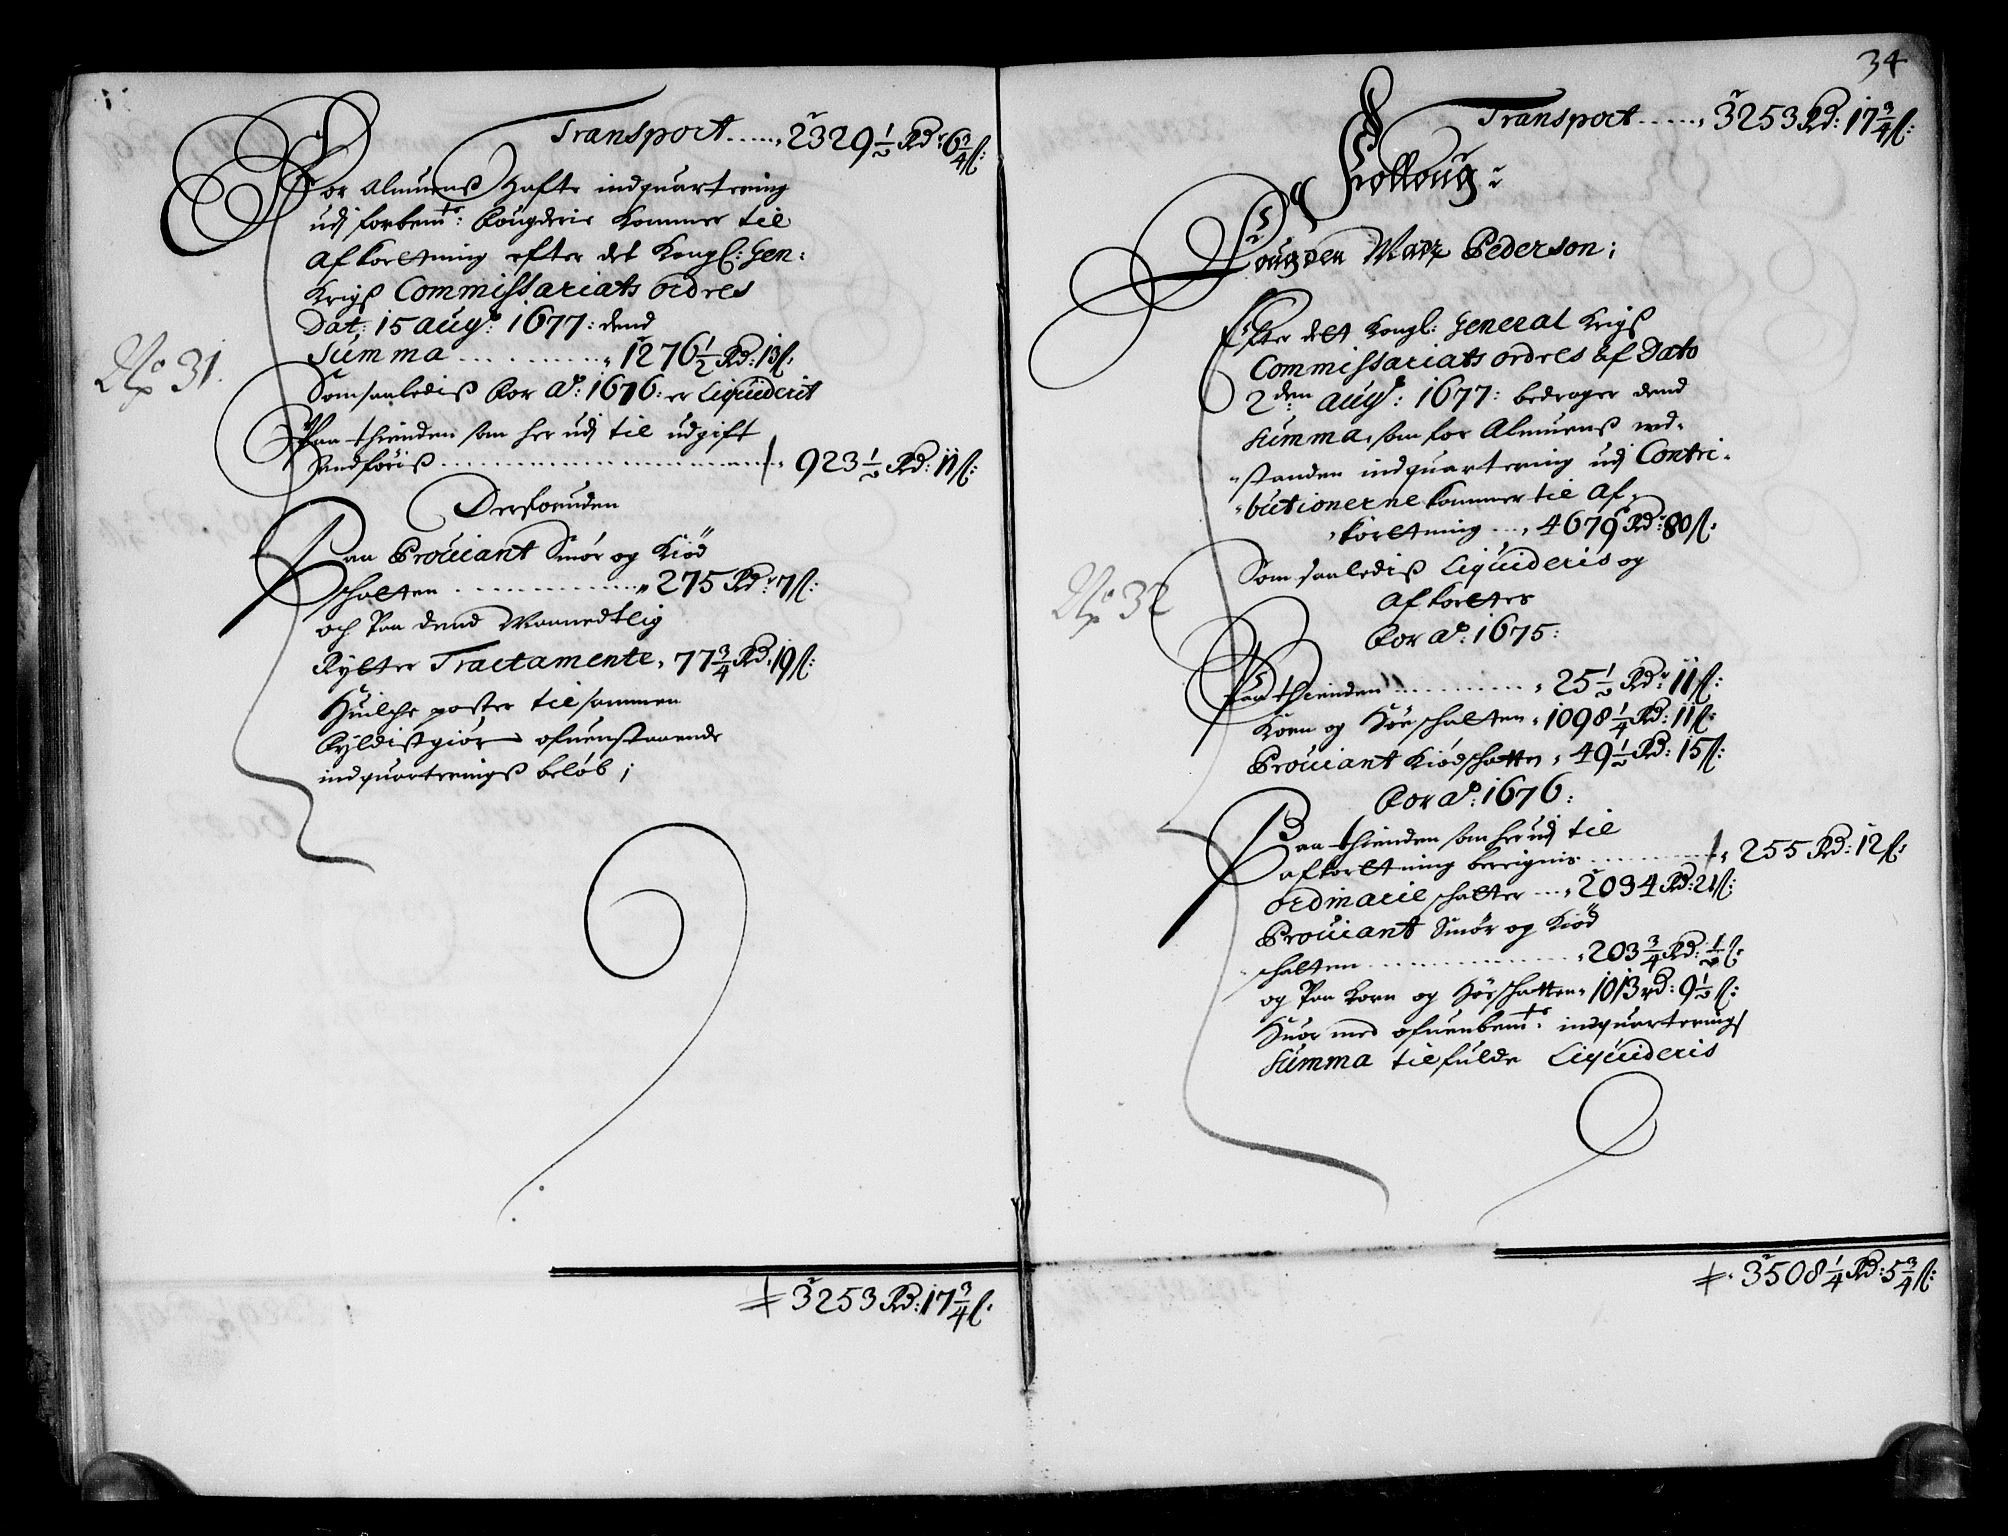 Transport ...... 2329 1/2 Rd: 6 3/4 ß:
For Almuens hafte indquartering
udj forbemt: fougderie kommer til
afkortning efter det Kongl: Gen:
Krigs Commissariats ordres
Dat: 15 augij: 1677: dend
Summa ........... 1276 1/2 Rd: 13 ß:
No 31.
Som saaledis for Ao: 1676: er Liquiderit
Paa thienden som her udj til udgift
Andføris ........................ 923 1/2 Rd: 11 ß:
Desforuden
Paa Prouiant Smør og Kiød
schatten ................ 275 Rd: 7 ß:
och Paa dend Maanedtlig
Rytter Tractamente, 77 3/4 Rd: 19 ß:
Huilche poster tilsammen
fyldistgiør ofuenstaaende
indquarterings beløb;
3253 Rd: 17 3/4 ß:
34
Transport ...... 3253 Rd: 17 3/4 ß:
Folloug:
Fougden Matz Pederson;
Efter dett Kongl: General Krigs
Commissariats ordres af Dato
2den augij: 1677: bedrager dend
Summa, som for Almuens ud-
standen indquartering udj Contri-
butionerne kommer til Af-
kortning .... 4679 Rd: 80 ß:
No 32
Som saaledis Liquideris og
afkortes
for ao: 1675:
Paa thienden ............ 25 1/2 Rd: 11 ß:
Korn og Høe schatten, 1098 1/4 Rd: 11 ß:
Prouiant Kiødschatten, 49 1/2 Rd: 15 ß:
for ao: 1676:
Paa thienden som her udj til
afkortning beregnis ............ 255 Rd: 12 ß:
ordinarie schatter .... 2034 Rd: 21 ß:
Prouiant Smør og Kiød
schatten ................ 203 3/4 Rd: 1/2 ß:
og Paa korn og Høeschatten, 1013 rd: 9 1/2 ß:
Huor med ofuenbemt: indquarterings
Summa tilfulde Liquideris
3508 1/4 Rd: 5 3/4 ß: